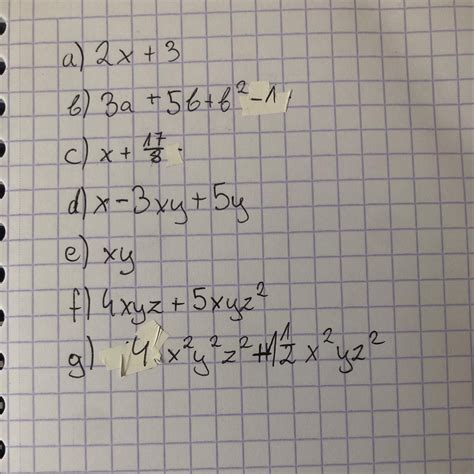 a) 2x + 3
b) 3a + 5b + b² - 1
c) x + 17/8
d) x - 3xy + 5y
e) xy
f) 4xyz + 5xyz²
g) 4 x²y²z² + 1 1/2 x²yz²